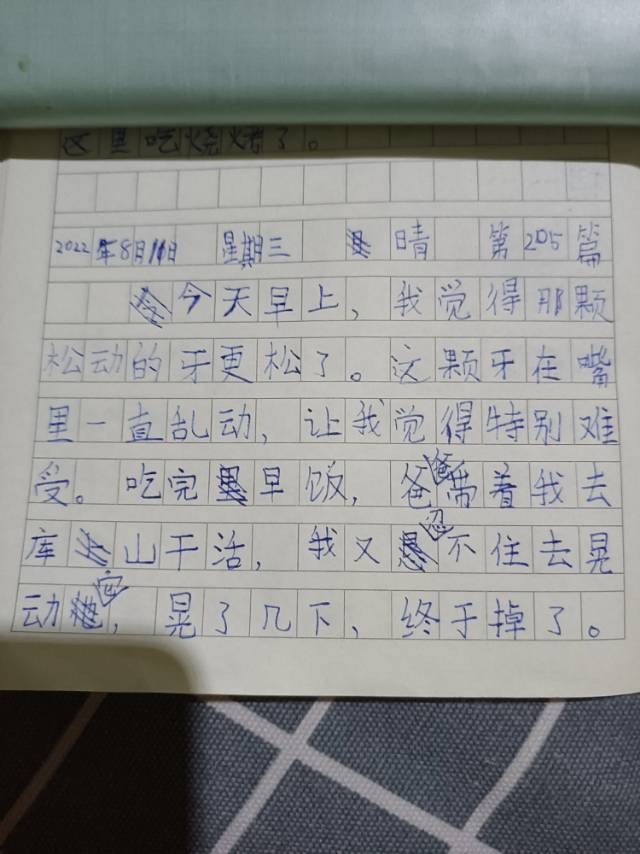 这里吃烧烤了。
2022年8月10日 星期三 晴 第205篇
今天早上，我觉得那颗
松动的牙更松了。这颗牙在嘴
里一直乱动，让我觉得特别难
受。吃完早饭，爸爸带着我去
库山干活，我又忍不住去晃
动它，晃了几下，终于掉了。